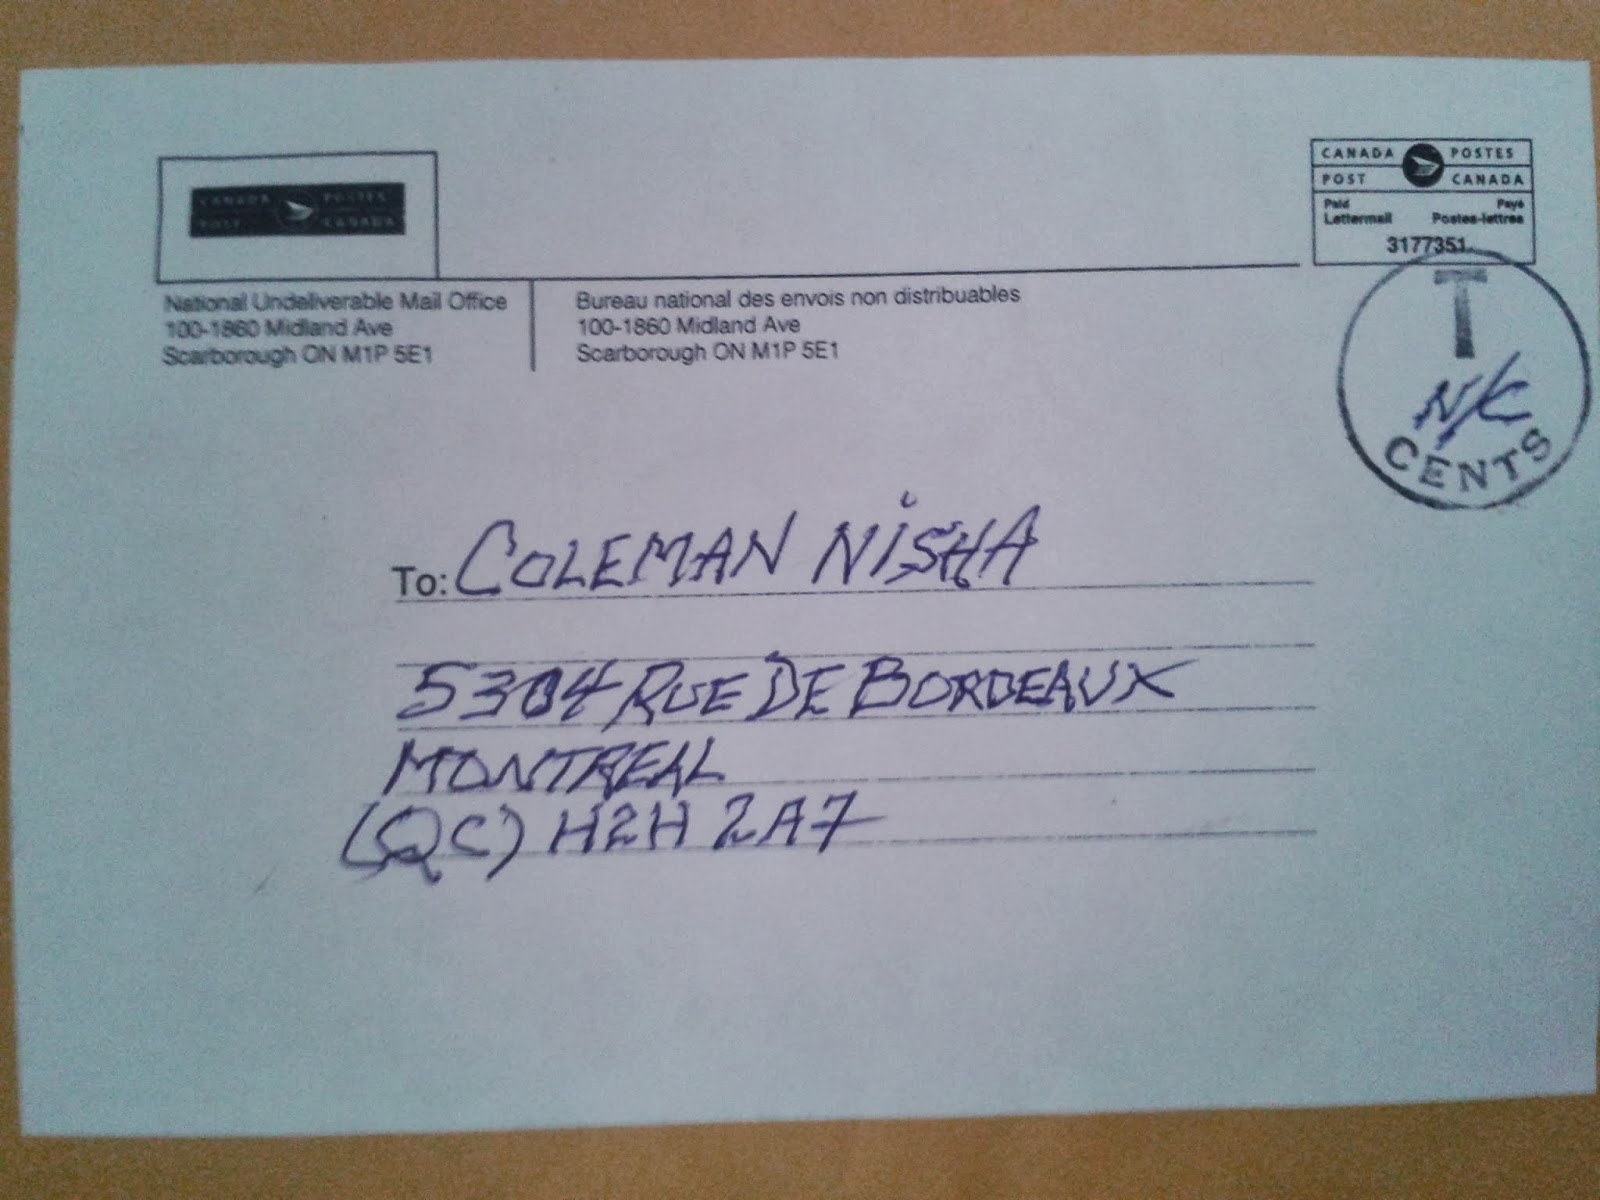 CANADA POSTES
POST CANADA
CANADA POSTES
POST CANADA
Paid Payé
Lettermail Postes-lettres
3177351
National Undeliverable Mail Office
100-1860 Midland Ave
Scarborough ON M1P 5E1
Bureau national des envois non distribuables
100-1860 Midland Ave
Scarborough ON M1P 5E1
T
N/C
CENTS
To: COLEMAN NiSHA
5304 RUE DE BORDEAUX
MONTREAL
(QC) H2H 2A7